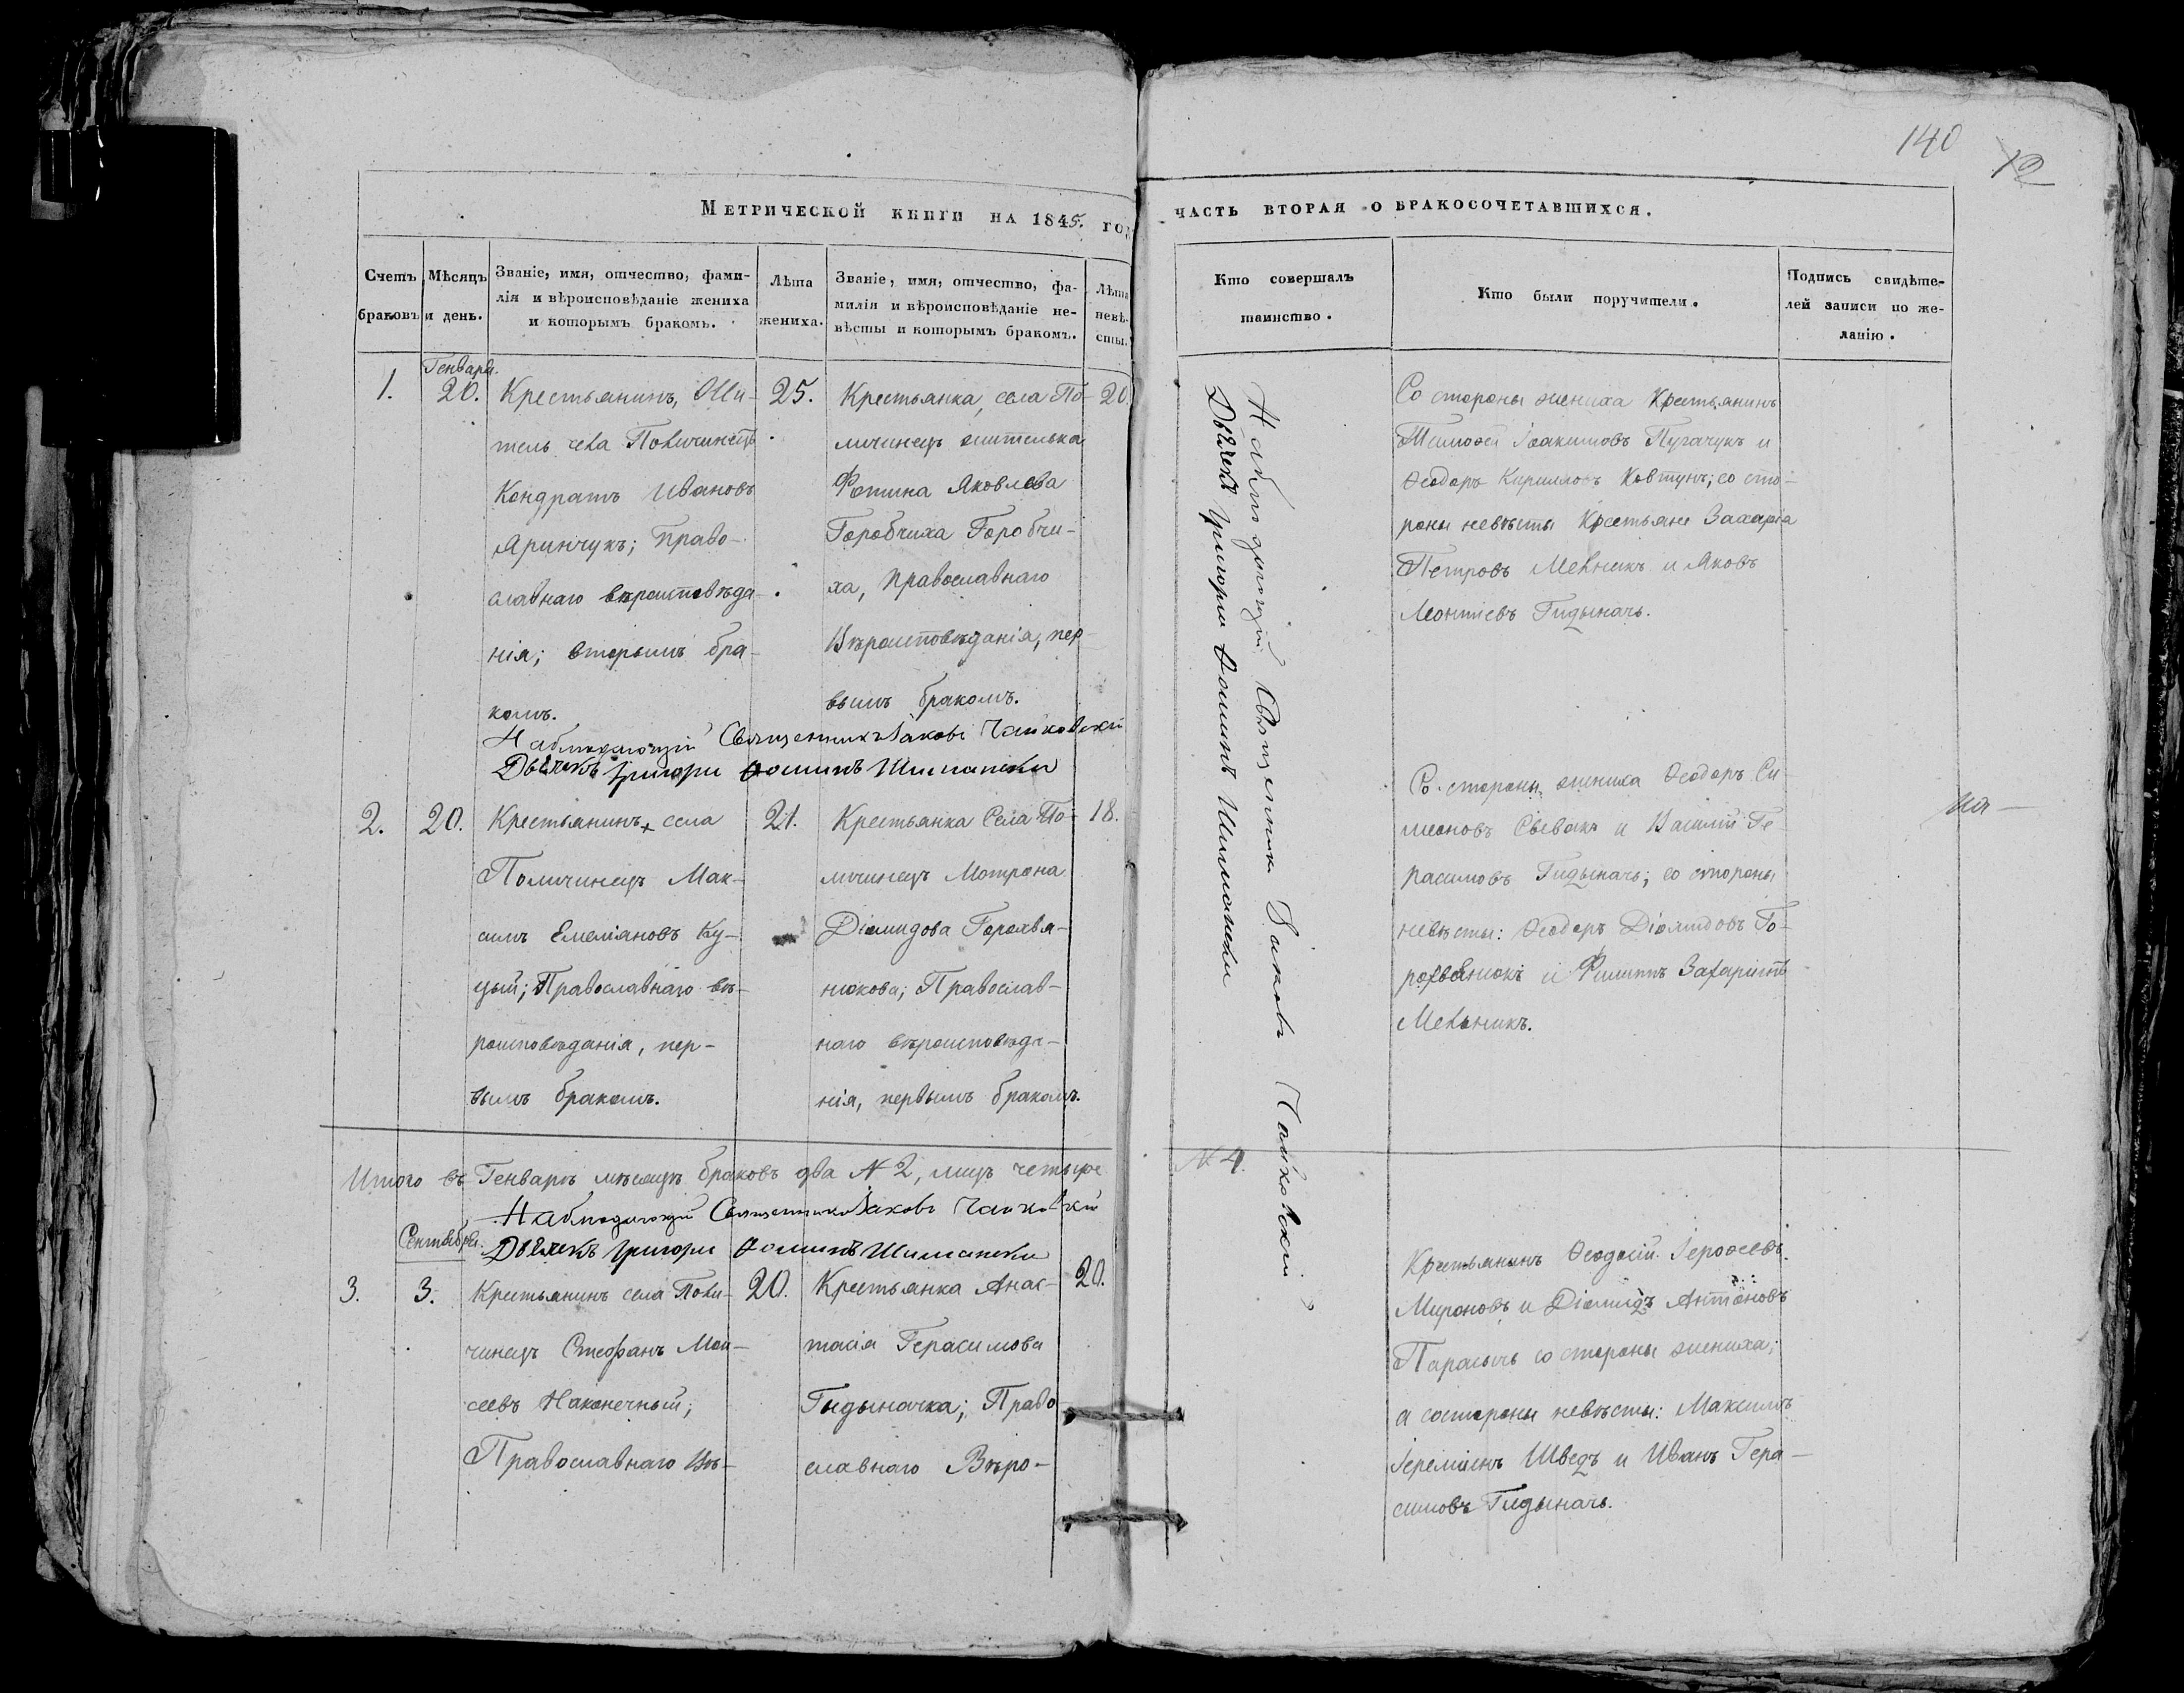 140
12
Метрической книги на 1845. год
часть вторая о бракосочетавшихся.
Счетъ
браковъ
Мѣсяцъ
и день.
Званіе, имя, отчество, фами-
лія и вѣроисповѣданіе жениха
и которымъ бракомъ.
Лѣта
жениха.
Званіе, имя, отчество, фа-
милія и вѣроисповѣданіе не-
вѣсты и которымъ бракомъ.
Лѣта
невѣ-
сты.
Кто совершалъ
таинство.
Кто были поручители.
Подпись свидѣте-
лей записи по же-
ланію.
1.
Генваря.
20.
Крестьянинъ, Жи-
тель села Поличинецъ
Кондратъ Ивановъ
Яринчукъ; Право-
славнаго вѣроисповѣда-
нія; вторымъ бра-
комъ.
25.
Крестьянка, села По-
личинецъ жителька
Фотина Яковлева
Горобчиха Горобчи-
ха, Православнаго
Вѣроисповѣданія, пер-
вымъ бракомъ.
20
Наблюдающій Священникъ Іаковъ Чайковскій
Дьячекъ Григорій Фоминъ Шиманскій
Наблюдающій Священникъ Іаковъ Чайковскій
Дьячекъ Григорій Фоминъ Шиманскій
Со стороны жениха Крестьянинъ
Тимофей Іоакимовъ Пугачукъ и
Ѳеодоръ Кирилловъ Ковтунъ; со сто-
роны невѣсты Крестьяне Захарія
Петровъ Мельникъ и Яковъ
Леонтіевъ Гидыначъ.
2.
20.
Крестьянинъ + села
Поличинецъ Мак-
симъ Емеліановъ Ку-
цый; Православнаго вѣ-
роисповѣданія, пер-
вымъ бракомъ.
21.
Крестьянка Села По-
личинецъ Мотрона
Діомидова Горохвя-
нюкова; Православ-
наго вѣроисповѣда-
нія, первымъ бракомъ.
18.
Со стороны жениха Ѳеодоръ Си-
меоновъ Сѣвакъ и Василій Ге-
расимовъ Гидыначъ; со стороны
невѣсты: Ѳеодоръ Діомидовъ Го-
рохвянюкъ и Филиппъ Захаріевъ
Мельникъ.
Итого въ Генварѣ мѣсяцѣ браковъ два N 2, лицъ четыре
N 4.
Наблюдающій Священникъ Іаковъ Чайковскій
Дьячекъ Григорій Фоминъ Шиманскій
3.
Сентября.
3.
Крестьянинъ села Поли-
чинецъ Стефанъ Мои-
сеевъ Наконечный;
Православнаго Вѣ-
20.
Крестьянка Анас-
тасія Герасимова
Гидыначка; Право
славнаго Вѣро-
20.
Крестьянинъ Ѳеодосій Іероѳеевъ
Мироновъ и Діомидъ Антоновъ
Парасычъ со стороны жениха;
а состороны невѣсты: Максимъ
Іереміинъ Шведъ и Иванъ Гера-
симовъ Гидыначъ.